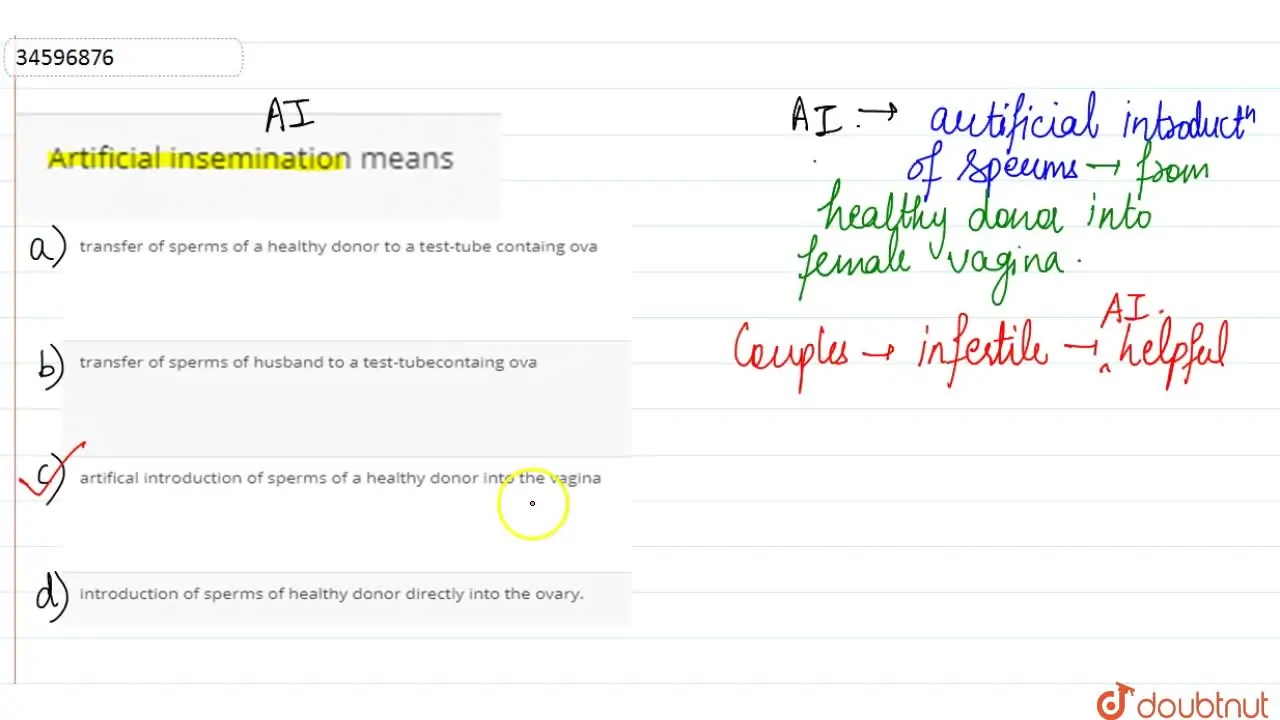 34596876
AI
Artificial insemination means
a) transfer of sperms of a healthy donor to a test-tube containg ova
b) transfer of sperms of husband to a test-tubecontaing ova
c) artifical introduction of sperms of a healthy donor into the vagina
d) introduction of sperms of healthy donor directly into the ovary.
AI. → artificial introductn
of sperms → from
healthy donor into
female vagina.
AI.
Couples → infertile → ^ helpful
doubtnut